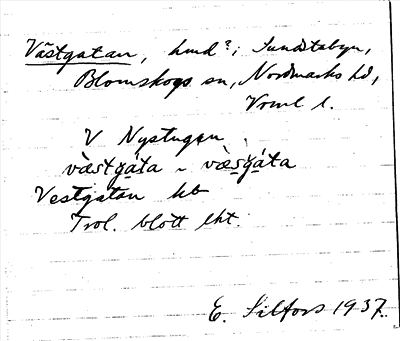 Västgatan, hmd?; Sundstabyn,
Blomskogs sn, Nordmarks hd,
Vrml l.
V Nystugan
væ̀stgáta ~ væ̀s̭gáta
Vestgatan kb
Trol. blott ekt.
E. Silfors 1937.